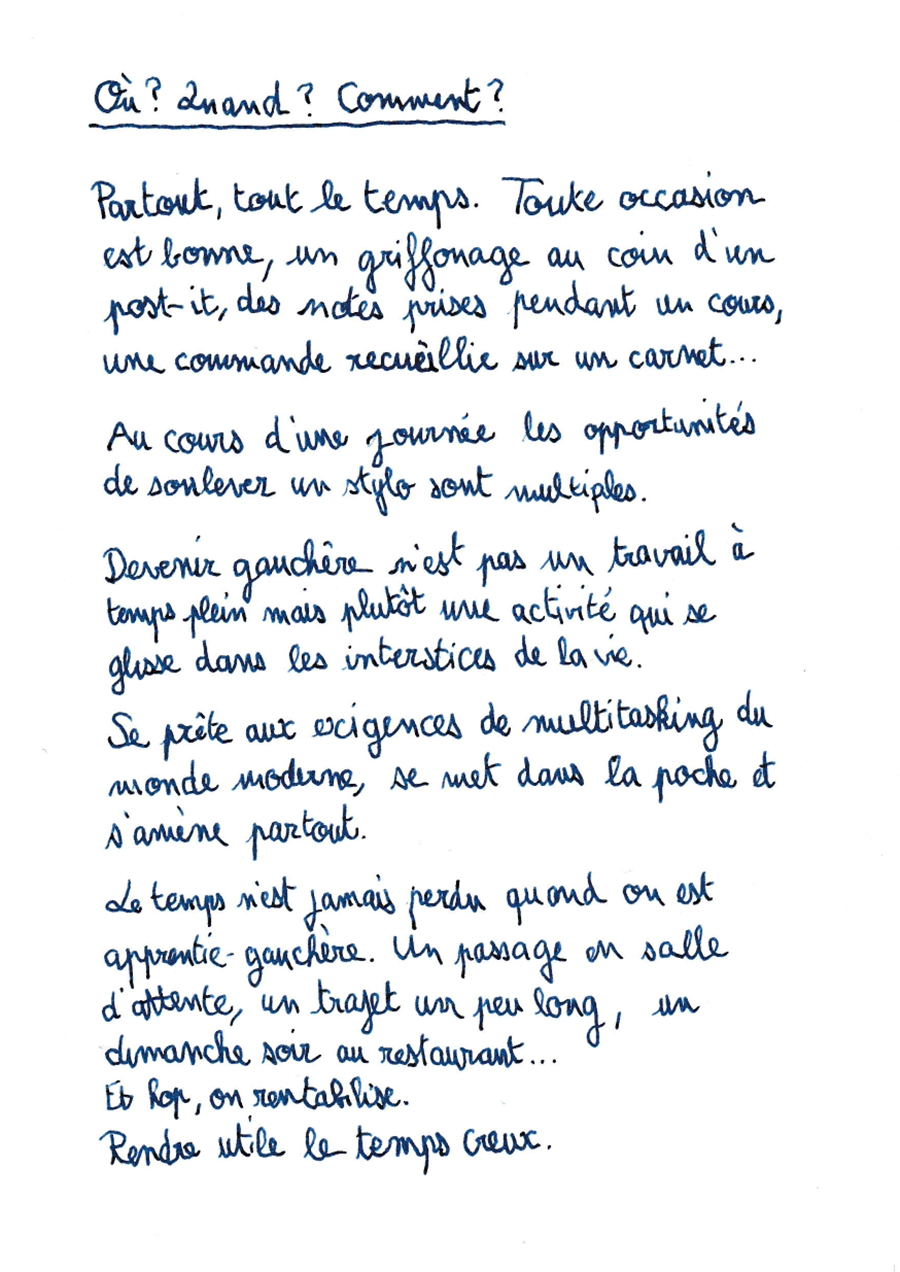 Où? Quand? Comment?
Partout, tout le temps. Toute occasion
est bonne, un griffonage au coin d'un
post-it, des notes prises pendant un cours,
une commande recueillie sur un carnet...
Au cours d'une journée les opportunités
de soulever un stylo sont multiples.
Devenir gauchère n'est pas un travail à
temps plein mais plutôt une activité qui se
glisse dans les interstices de la vie.
Se prête aux exigences de multitasking du
monde moderne, se met dans la poche et
s'amène partout.
Le temps n'est jamais perdu quand on est
apprentie-gauchère. Un passage en salle
d'attente, un trajet un peu long, un
dimanche soir au restaurant...
Et hop, on rentabilise.
Rendre utile le temps creux.